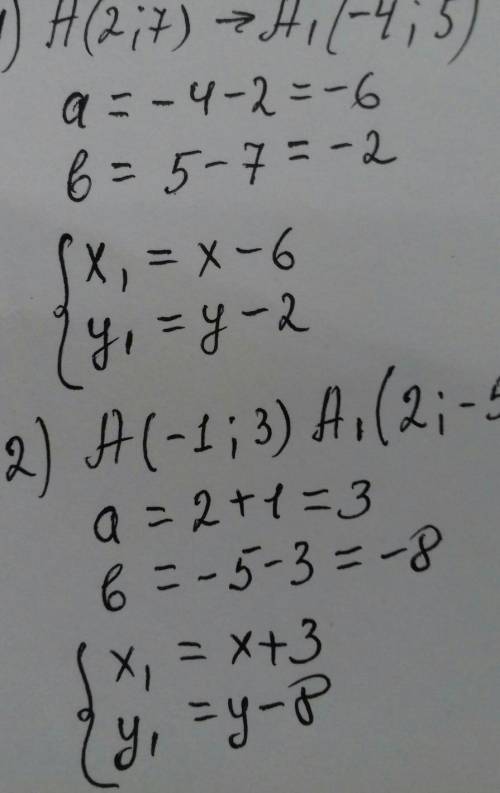 1) A(2;7) → A₁(-4;5)
a = -4-2 = -6
в = 5-7 = -2
{ x₁ = x-6
y₁ = y-2
2) A(-1;3) A₁(2;-5
a = 2+1 = 3
в = -5-3 = -8
{ x₁ = x+3
y₁ = y-8